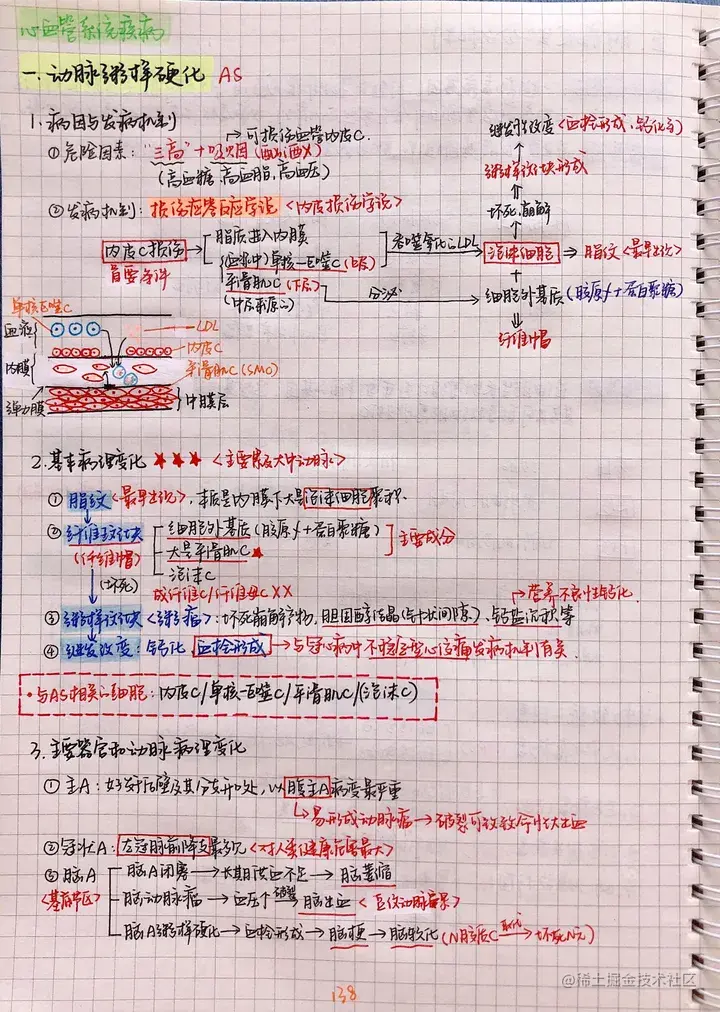 心血管系统疾病
一. 动脉粥样硬化 AS
1. 病因与发病机制
→可损伤血管内皮C.
① 危险因素: "三高"+吸烟
(高血糖、高血脂、高血压)
② 发病机制: 损伤应答反应学说 <内皮损伤学说>
内皮C损伤
首要条件
脂质进入内膜
(血液中)单核-巨噬C(上层)
平滑肌C(下层)
吞噬氧化LDL
分泌
继发性改变<血栓形成、钙化等>
粥样斑块形成
坏死、崩解
泡沫细胞 ⇒ 脂纹<最早出现>
+
细胞外基质(胶原f+蛋白聚糖)
纤维帽
单核巨噬C
血液
LDL
内皮C
内膜
平滑肌C(SMC)
弹力膜
中膜层
2. 基本病理变化 ★★★ <主要累及大中动脉>
① 脂纹<最早出现>, 本质是内膜下大量泡沫细胞聚积.
② 纤维斑块
(纤维帽)
细胞外基质(胶原f+蛋白聚糖)
大量平滑肌C★
泡沫C
主要成分
成纤维C/纤维母C XX
(坏死)
→营养不良性钙化
③ 粥样斑块<粥瘤>: 坏死崩解产物, 胆固醇结晶(针状间隙)、钙盐沉积等
④ 继发改变: 钙化 血栓形成→与冠心病中不稳定型心绞痛发病机制有关.
• 与AS相关的细胞: 内皮C/单核-巨噬C/平滑肌C/(泡沫C)
3. 主要器官和动脉病理变化
① 主A: 好发于后壁及其分支开口处, 以腹主A病变最严重
↳易形成动脉瘤→破裂可致致命性大出血
② 冠状A: 左冠脉前降支最多见<对人类健康危害最大>
③ 脑A
<基底节区>
脑A闭塞→长期供血不足→脑萎缩
脑动脉瘤→血压↑ 破裂→脑出血
脑A粥样硬化→血栓形成→脑梗→脑软化(N胶质C 取代→坏死N元)
138
@稀土掘金技术社区